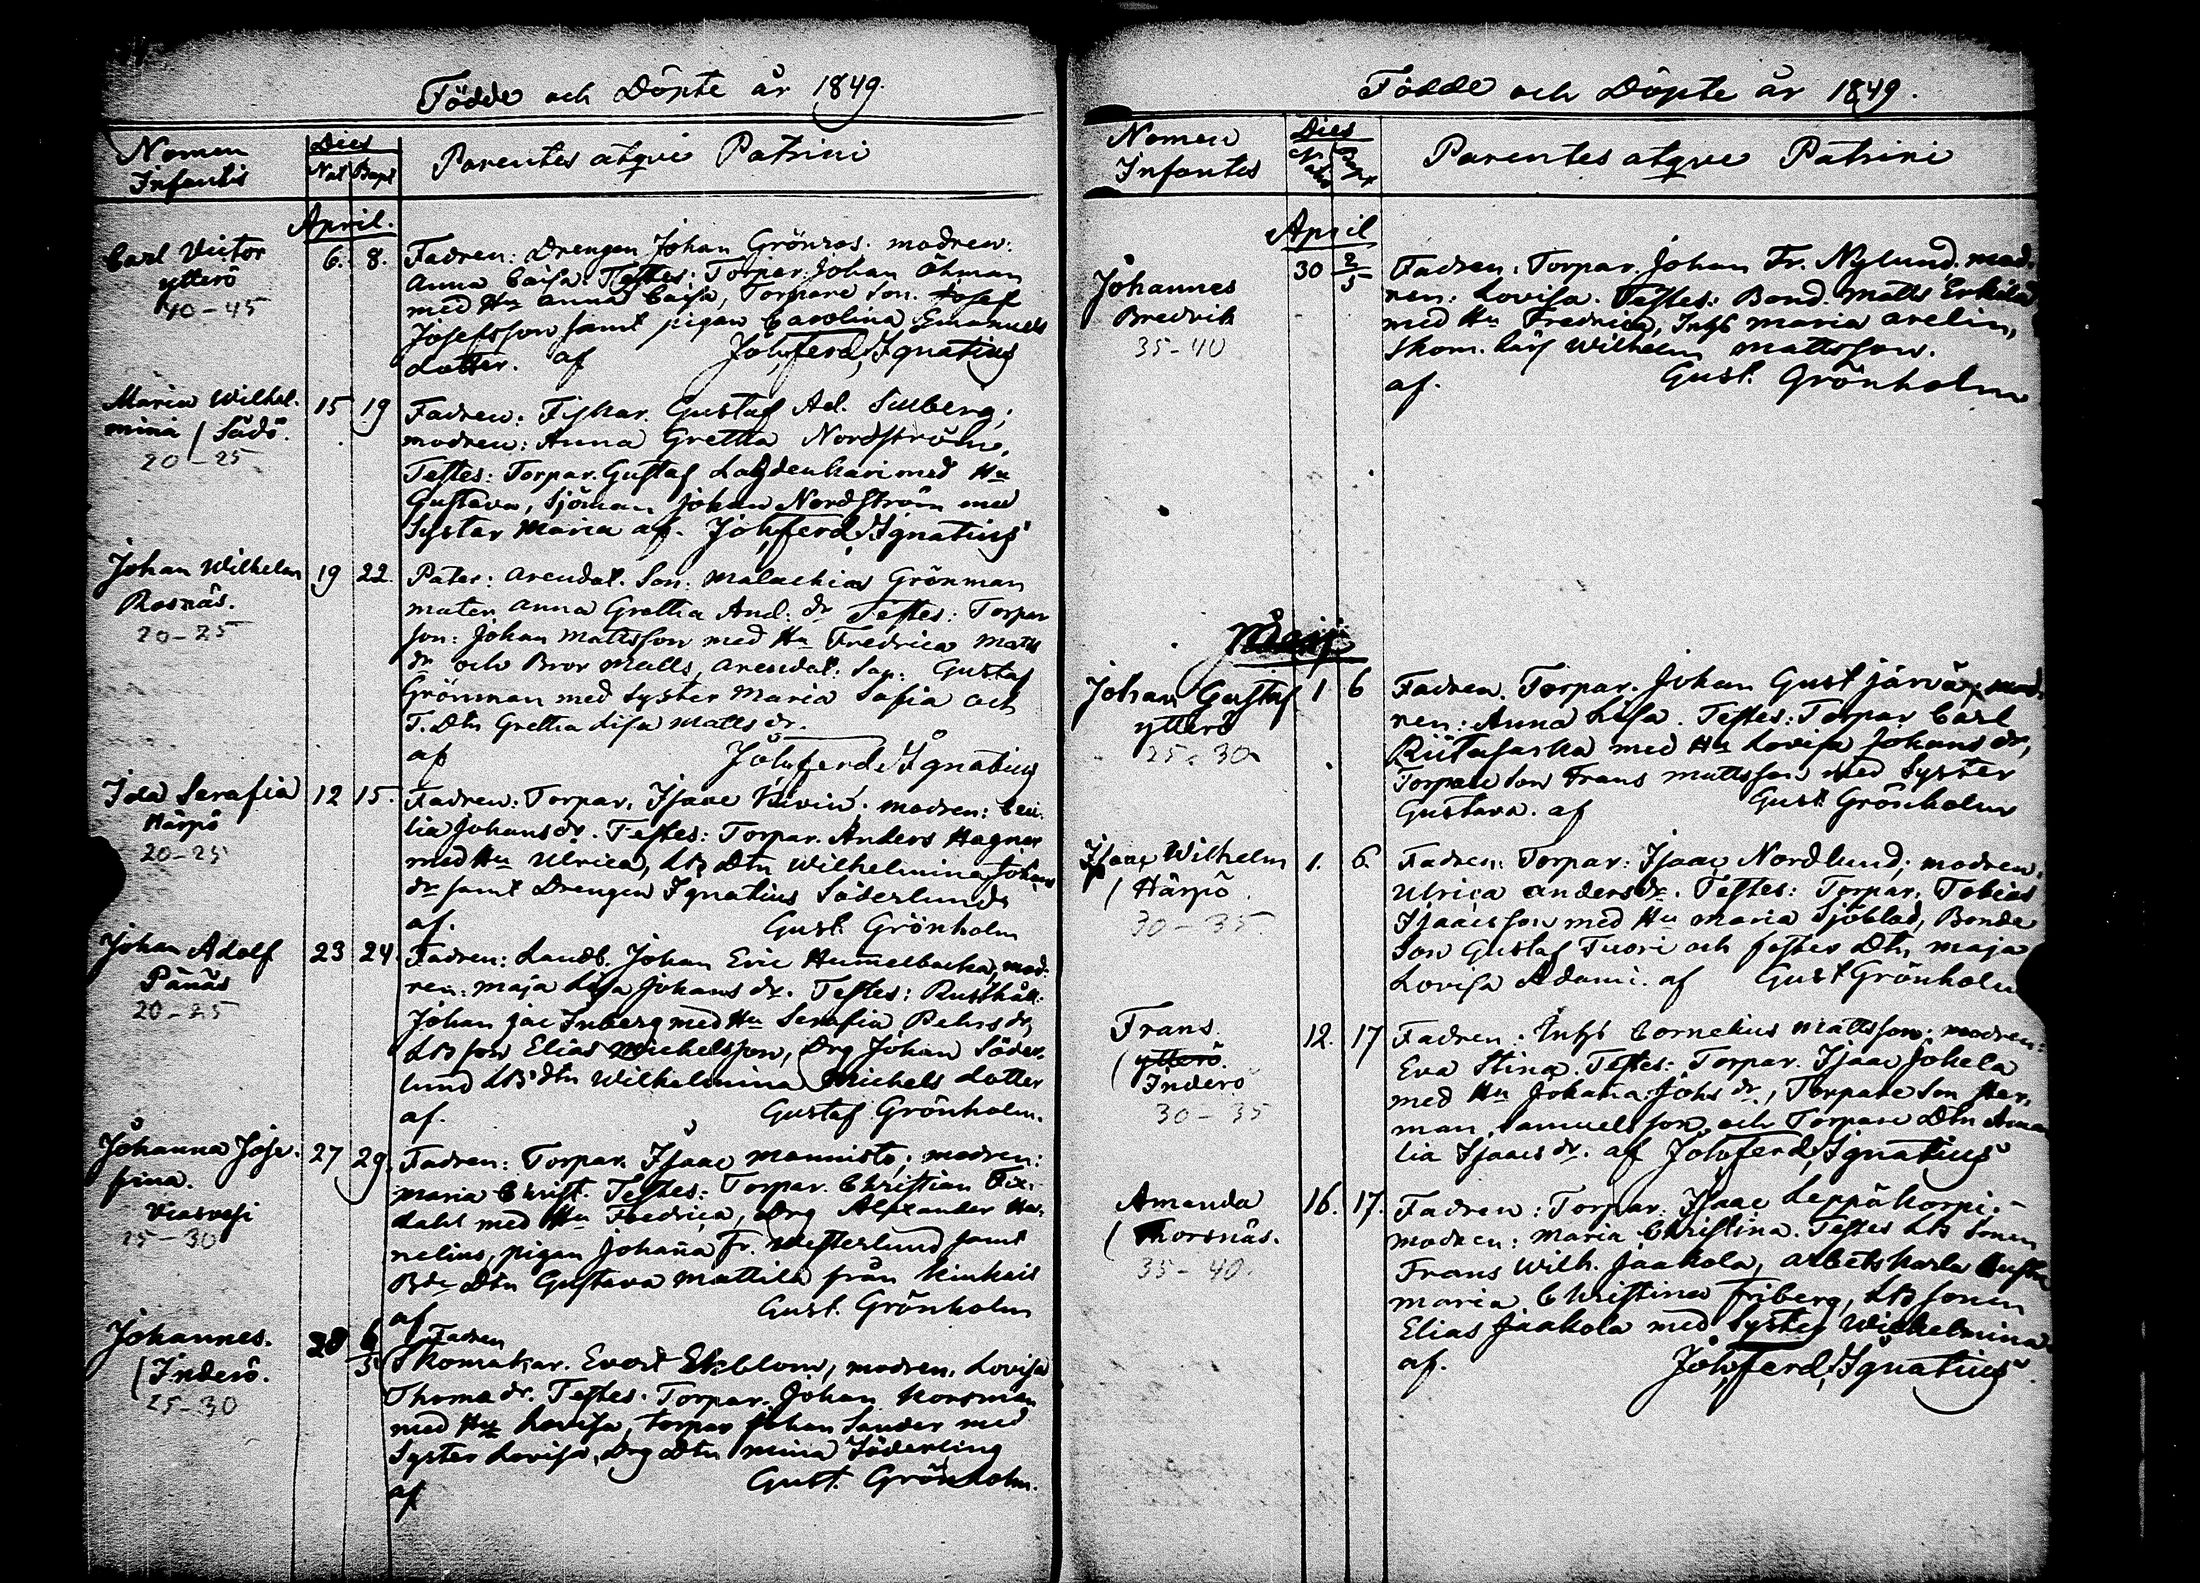 Födde och Döpte år 1849.
Nomen Infantis
Dies
Nat Bapt
Parentes atqve Patrini
April.
Carl Victor
ytterö
40-45
6. 8.
Fadren: Drengen Johan Grönros. modren:
Anna Caisa. Testes: Torpar. Johan Öhman
med Hu Anna Caisa, Torpare Son. Josef
Josefsson samt pigan Carolina Emanuels
dotter. af Joh, ferd, Ignatius
Maria Wilhel-
mina / Sådö.
20-25
15 19
Fadren: Fiskar. Gustaf Ad.
modren: Anna Gretta Nordström,
Testes: Torpar. Gustaf med Hu
Gustava, Sjöman Johan Nordström med
Syster Maria af. Joh, ferd, Ignatius
Johan Wilhelm
Rosnäs.
20-25
19 22.
Pater: Arendat. Son: Malachias Grönman
mater Anna Gretta And: dr Testes: Torpar
son: Johan Mattsson med Hu Fredrica Matts
dr och Bror Matts, Arendat: Son: Gustaf
Grönman med Syster Maria Sofia och
T. Dtn Gretta Lisa Matts dr.
af Joh, ferd, Ignatius
Ida Serafia
Härpö
20-25
12 15.
Fadren: Torpar. Isaac Kivin; modren: Ceci-
lia Johans dr. Testes: Torpar. Anders Hagnar
med Hu Ulrica, LB Dtn Wilhelmina Johans
dr samt Drengen Ignatius Söderlund
af. Gust. Grönholm
Johan Adolf
Pånäs
20-25
23 24.
Fadren: Landb. Johan Eric Hummelbacka, mod-
ren: Maja Lisa Johans dr. Testes: Rusthåll:
Johan Jac Inberg med Hu Serafia Pehrs dr,
LB son Elias Michelsson, Drg Johan Söder-
lund LB dtn Wilhelmina Michels dotter
af. Gustaf Grönholm.
Johanna Jose-
fina.
Viasvesi
25-30
27 29.
Fadren: Torpar. Isaac Mannisto; modren:
Maria Christ. Testes: Torpar. Christian
med Hu Fredrica, Drg Alexander
nelius, pigan Johanna Fr. Westerlund samt
Bde Dtn Gustava Mattila från
af Gust. Grönholm
Johannes.
(Inderö.
25-30
28 6/5
Fadren
Skomakar. Evert Ekblom, modren. Lovisa
Thoma dr. Testes. Torpar. Johan Korsman
med Hu Lovisa, torpar Johan Sander med
Syster Lovisa, Drg Dtn Mina Söderling
af Gust. Grönholm.
Födde och Döpte år 1849.
Nomen Infantes
Dies
Parentes atqve Patrini
April
Johannes
Bredvik
35-40
30 2/5
Fadren: Torpar. Johan Fr. Nylund, mod-
ren: Lovisa. Testes: Bond. Matts Erkilä
med Hu Fredrica, Inhs Maria Avelin,
Skom. Lärl Wilhelm Mattsson.
af. Gust. Grönholm
Maij
Johan Gustaf
ytterö
25-30
1 6
Fadren. Torpar. Johan Gust Järvä; mod-
ren: Anna Lisa. Testes: Torpar Carl
med Hu Lovisa Johans dr,
Torpare Son Frans Mattsson med Syster
Gustava. af Gust Grönholm
Isaac Wilhelm
(Härpö.
30-35
1. 6.
Fadren: Torpar: Isaac Nordlund; modren:
Ulrica Anders dr. Testes: Torpar: Tobias
Isaacsson med Hu Maria Sjöblad, Bonde
Son Gustaf Tuori och foster Dtn Maja
Lovisa Adami. af Gust Grönholm
Frans.
(ytterö.
Inderö
30-35
12. 17
Fadren: Inhs Cornelius Mattsson; modren:
Eva Stina. Testes: Torpar. Isaac Jokela
med Hu Johanna Johs dr., Torpare Son Her-
man Samuelsson, och Torpare Dtn Ama-
lia Isaacs dr. af Joh, ferd, Ignatius
Amanda
(Thorsnäs.
35-40
16. 17.
Fadren: Torpar. Isaac Leppäkorpi.
modren: Maria Christina. Testes LB Sonen
Frans Wilh. Jaakola, arbetskarls hustru
Maria Christina Friberg, LB sonen
Elias Jaakola med Syster Wilhelmina.
af. Joh, ferd, Ignatius